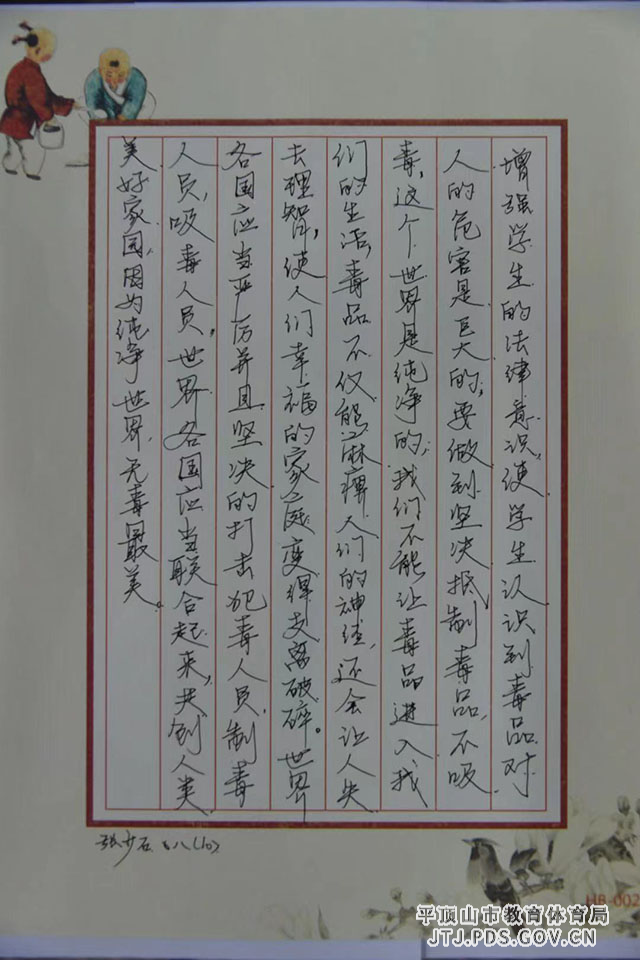 增强学生的法律意识,使学生认识到毒品对
人的危害是巨大的,要做到坚决抵制毒品,不吸
毒,这个世界是纯净的,我们不能让毒品进入我
们的生活,毒品不仅能麻痹人们的神经,还会让人失
去理智,使人们幸福的家庭变得支离破碎。世界
各国应当严厉并且坚决的打击犯毒人员,制毒
人员,吸毒人员,世界各国应当联合起来,共创人类
美好家园,因为纯净世界,无毒最美。
张少石 八(10)
HB-002
平顶山市教育体育局
JTJ.PDS.GOV.CN